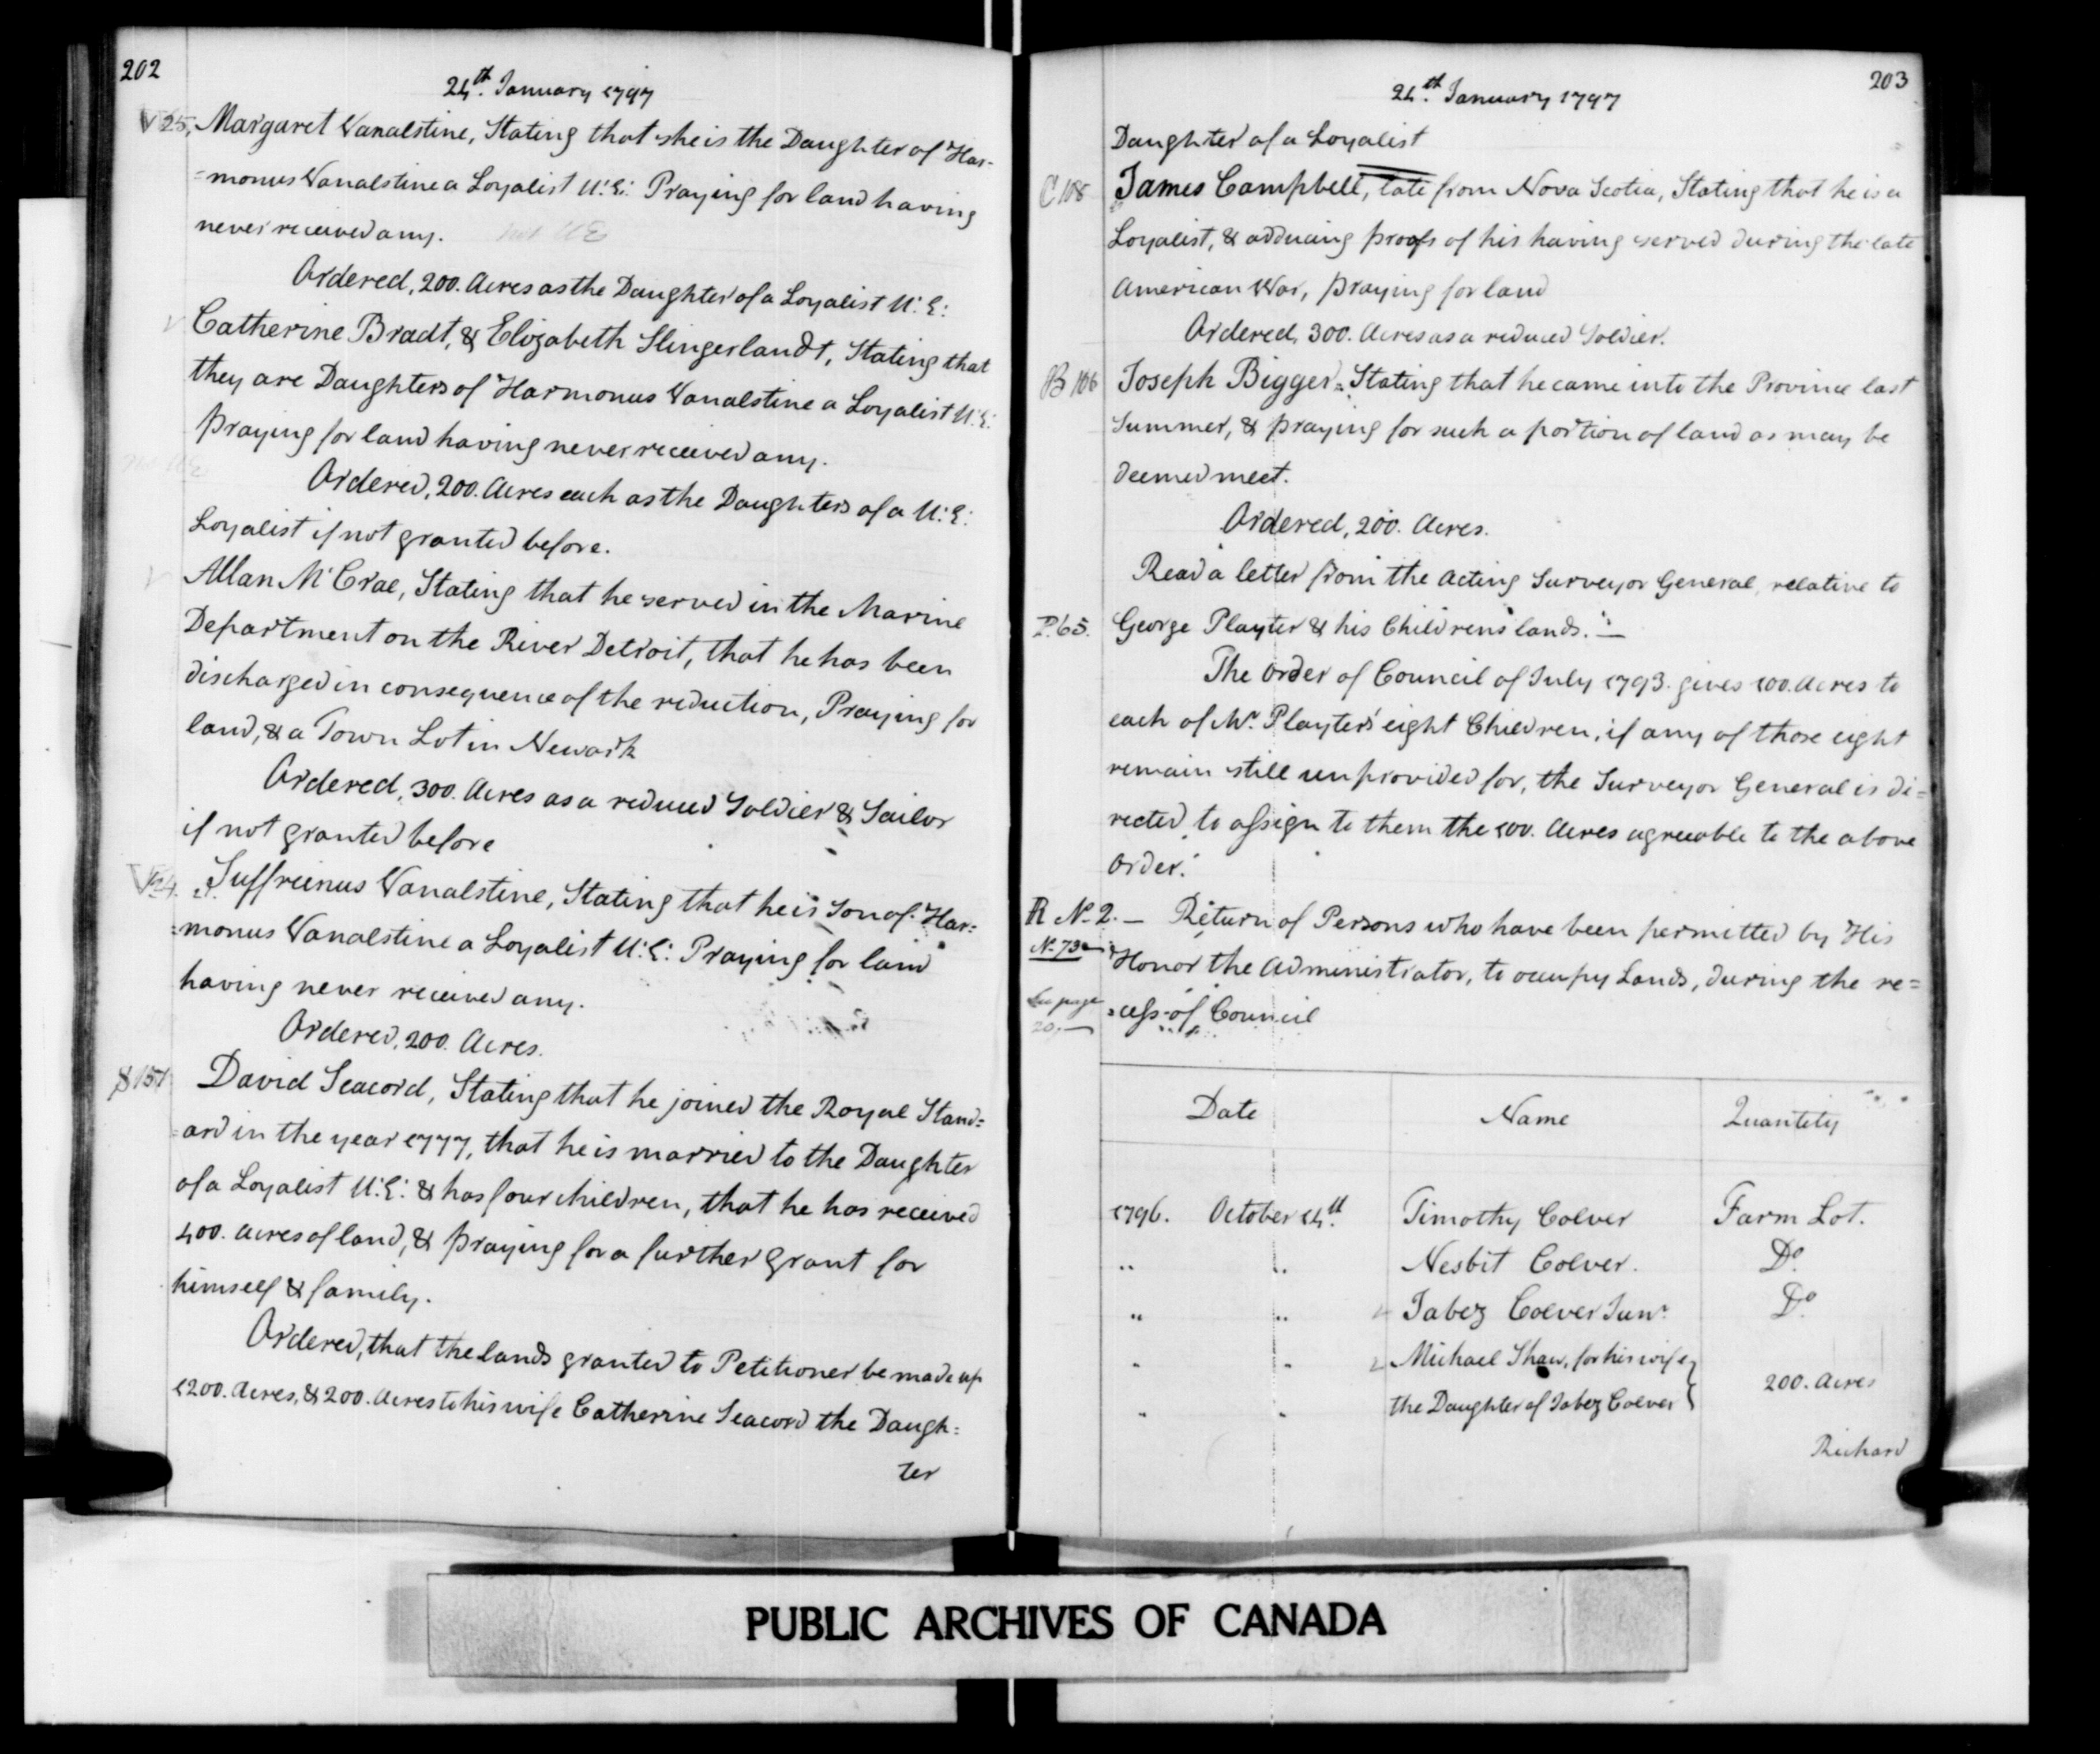 202
24th. January 1797
V 25. Margaret Vanalstine, Stating that she is the Daughter of Har-
=monus Vanalstine a Loyalist U: E: Praying for land having
never received any. not UE
Ordered, 200. Acres as the Daughter of a Loyalist U: E:
Catherine Bradt, & Elizabeth Slingerlandt, Stating that
they are Daughters of Harmonus Vanalstine a Loyalist U: E:
Praying for land having never received any.
not UE
Ordered, 200. Acres each as the Daughters of a U: E:
Loyalist if not granted before.
Allan McCrae, Stating that he served in the Marine
Department on the River Detroit, that he has been
discharged in consequence of the reduction, Praying for
land, & a Town Lot in Newark
Ordered, 300. Acres as a reduced Soldier & Sailor
if not granted before
V 24. Suffreenus Vanalstine, Stating that he is Son of Har=
=monus Vanalstine a Loyalist U: E: Praying for land
having never received any.
Ordered, 200. Acres.
S 151 David Seacord, Stating that he joined the Royal Stand=
=ard in the year 1777, that he is married to the Daughter
of a Loyalist U: E: & has four children, that he has received
400. Acres of land, & praying for a further grant for
himself & family.
Ordered, that the lands granted to Petitioner be made up
1200. Acres, & 200. Acres to his wife Catherine Seacord the Daugh=
ter
203
24th. January 1797
Daughter of a Loyalist
C 108 James Campbell, late from Nova Scotia, Stating that he is a
Loyalist, & adducing proofs of his having served during the late
American War, praying for land
Ordered, 300. Acres as a reduced Soldier.
B 106 Joseph Bigger = Stating that he came into the Province last
Summer, & praying for such a portion of land as may be
deemed meet.
Ordered, 200. Acres.
Read a letter from the Acting Surveyor General, relative to
P. 65. George Playter & his Childrens lands. —
The Order of Council of July 1793. gives 100. Acres to
each of Mr. Playter's eight Children, if any of those eight
remain still unprovided for, the Surveyor General is di=
rected to assign to them the 100. Acres agreeable to the above
Order.
R No. 2. — Return of Persons who have been permitted by His
No. 73 Honor the Administrator, to occupy Lands, during the re=
See page =cess of Council
20
Date Name Quantity
1796. October 14th. Timothy Colver Farm Lot.
" " Nesbit Colver. Do.
" " Jabez Colver Junr. Do.
" " Michael Shaw, for his wife }
" " the Daughter of Jabez Colver } 200. Acres
Richard
PUBLIC ARCHIVES OF CANADA